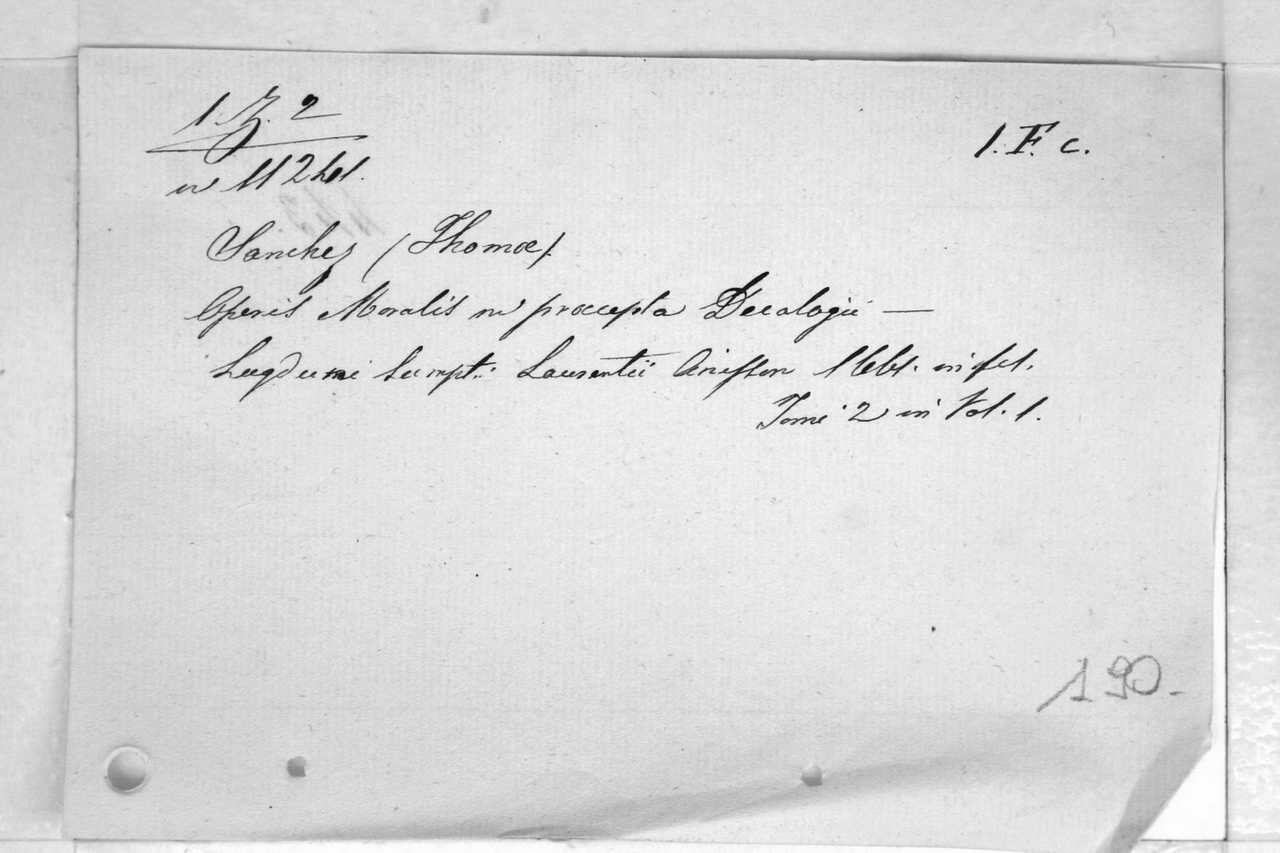 1. Z. 2
1. F. c.
Sanchez (Thomæ).
Operis Moralis in præcepta Decalogii —
Lugduni Sumpt: Laurentii Anisson 1661. in fol.
Tomi 2 in Vol. 1.
190.